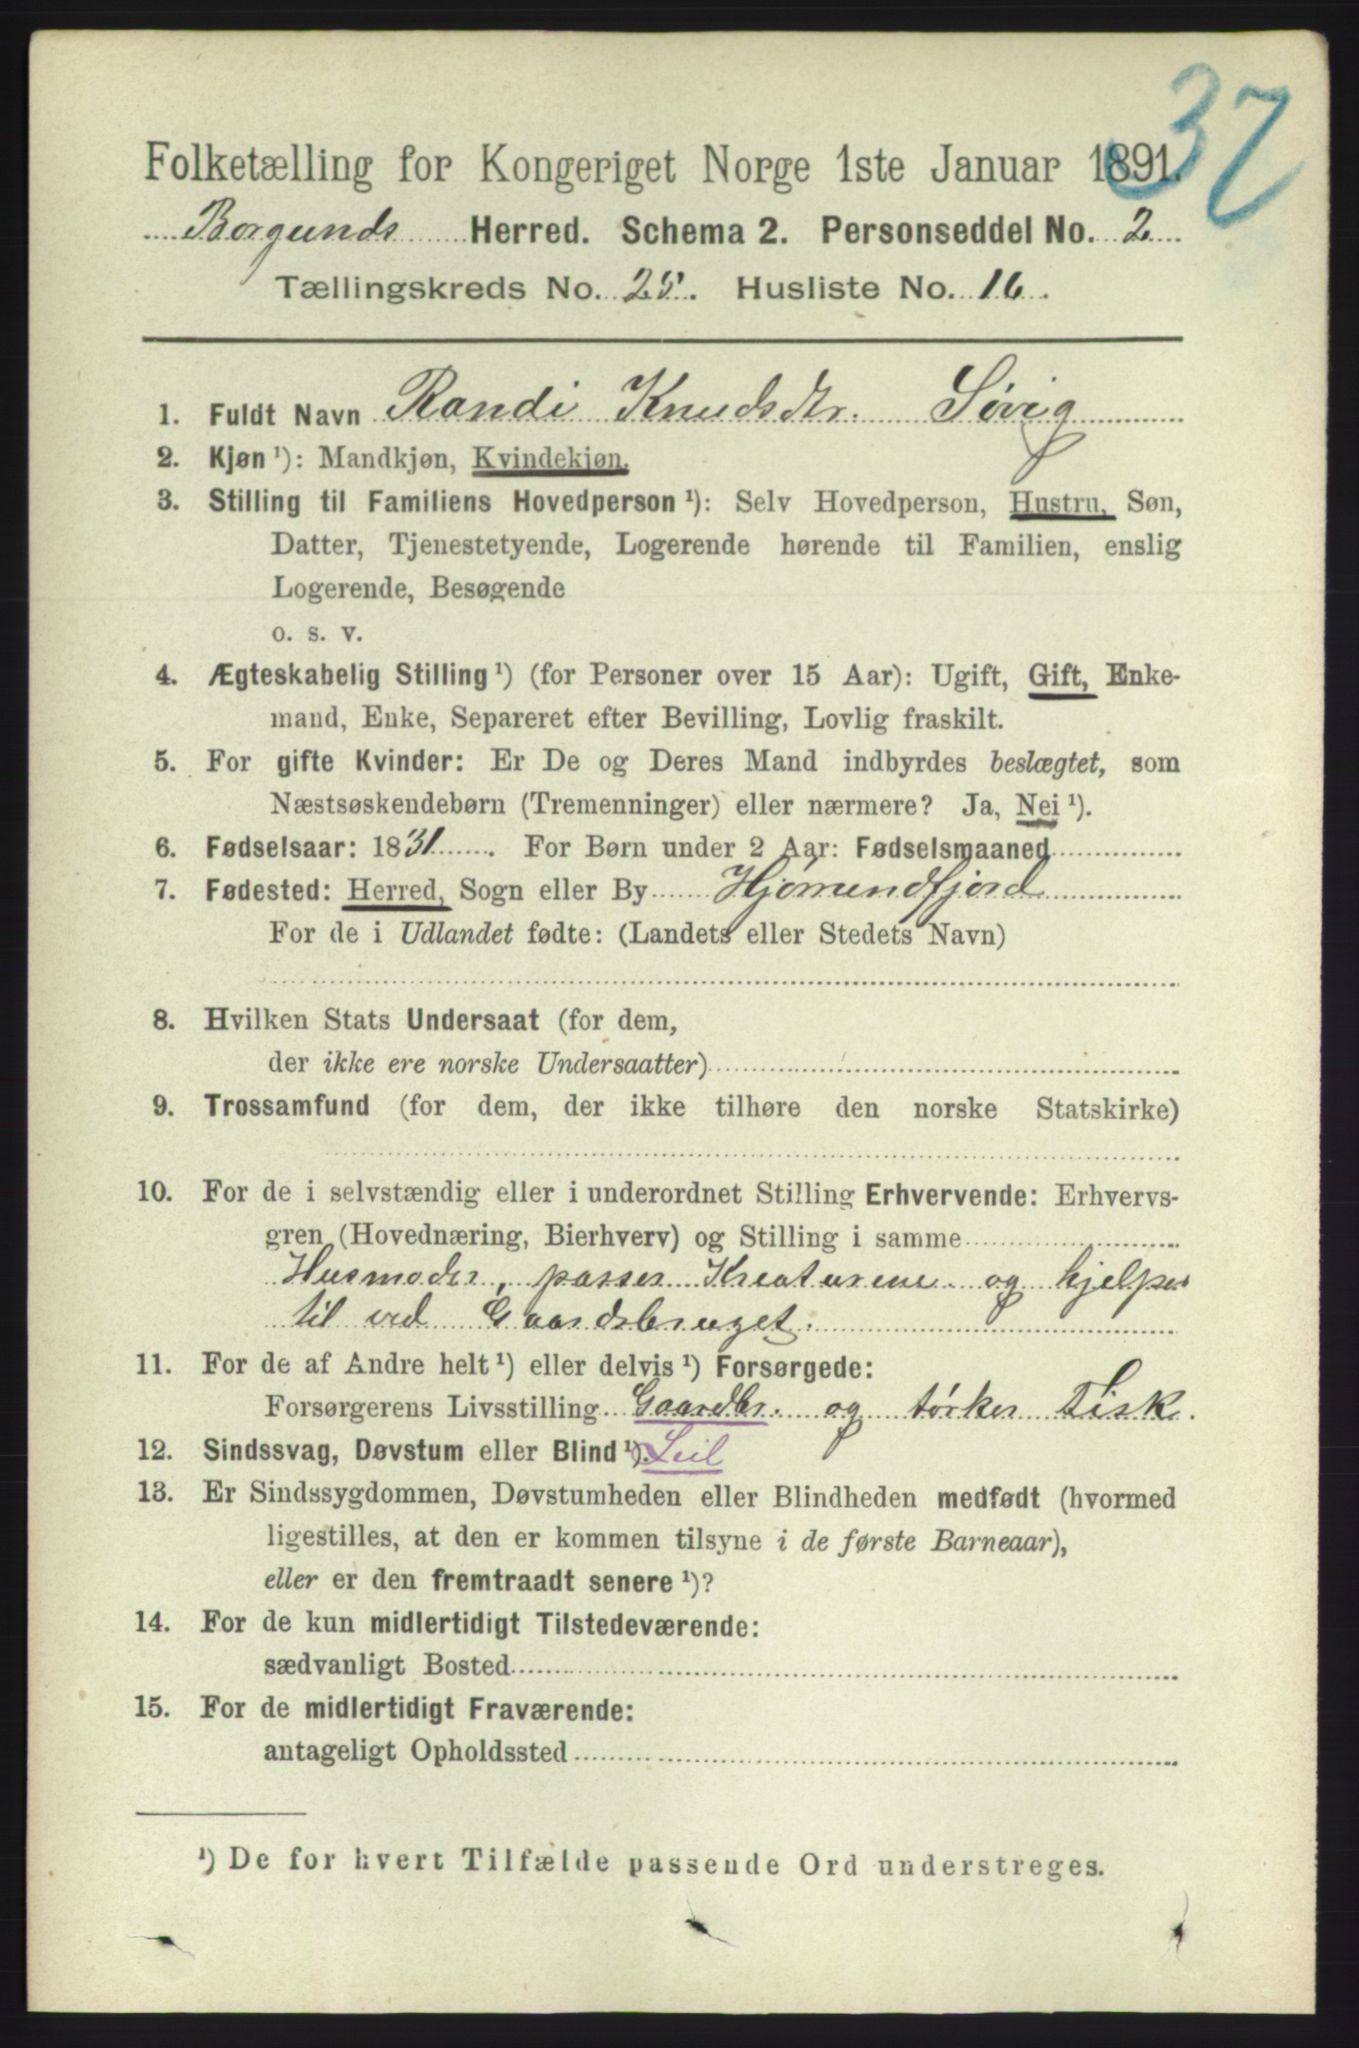 37
Folketælling for Kongeriget Norge 1ste Januar 1891.
Borgunds Herred. Schema 2. Personseddel No. 2
Tællingskreds No. 25. Husliste No. 16.
1. Fuldt Navn Randi Knudsdtr. Søvig
2. Kjøn ¹): Mandkjøn, Kvindekjøn.
3. Stilling til Familiens Hovedperson ¹): Selv Hovedperson, Hustru, Søn,
Datter, Tjenestetyende, Logerende hørende til Familien, enslig
Logerende, Besøgende
o. s. v.
4. Ægteskabelig Stilling ¹) (for Personer over 15 Aar): Ugift, Gift, Enke-
mand, Enke, Separeret efter Bevilling, Lovlig fraskilt.
5. For gifte Kvinder: Er De og Deres Mand indbyrdes beslægtet, som
Næstsøskendebørn (Tremenninger) eller nærmere? Ja, Nei ¹).
6. Fødselsaar: 1831. For Børn under 2 Aar: Fødselsmaaned
7. Fødested: Herred, Sogn eller By Hjørrendfjord
For de i Udlandet fødte: (Landets eller Stedets Navn)
8. Hvilken Stats Undersaat (for dem,
der ikke ere norske Undersaatter)
9. Trossamfund (for dem, der ikke tilhøre den norske Statskirke)
10. For de i selvstændig eller i underordnet Stilling Erhvervende: Erhvervs-
gren (Hovednæring, Bierhverv) og Stilling i samme
Husmoder, passer Kreaturene og hjelper
til ved Gaardsbruget.
11. For de af Andre helt ¹) eller delvis ¹) Forsørgede:
Forsørgerens Livsstilling Gaardbr. og tørker Fisk.
12. Sindssvag, Døvstum eller Blind ¹). Leil
13. Er Sindssygdommen, Døvstumheden eller Blindheden medfødt (hvormed
ligestilles, at den er kommen tilsyne i de første Barneaar),
eller er den fremtraadt senere ¹)?
14. For de kun midlertidigt Tilstedeværende:
sædvanligt Bosted
15. For de midlertidigt Fraværende:
antageligt Opholdssted
¹) De for hvert Tilfælde passende Ord understreges.